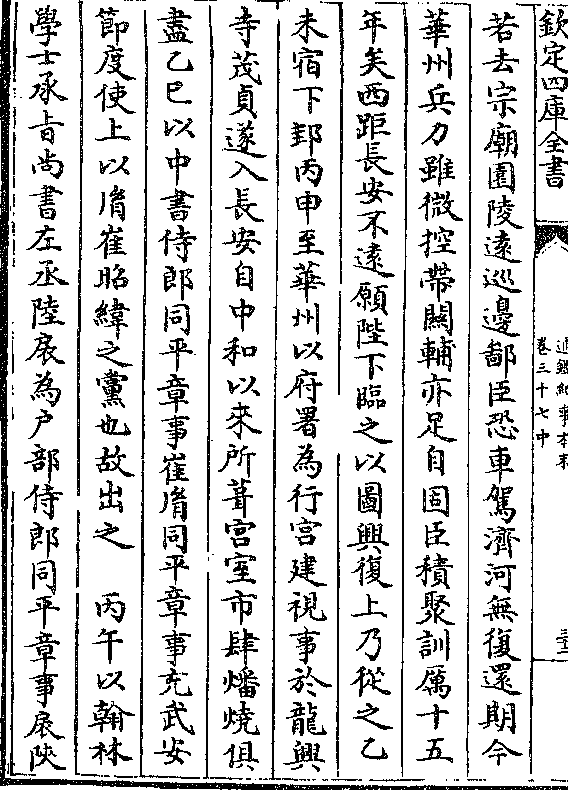 欽定四庫全書
通鑑紀事本末
卷三十七中
若去宗廟園陵遠巡邊鄙臣恐車駕濟河無復還期今
華州兵力雖微控帶關輔亦足自固臣積聚訓厲十五
年矣西距長安不遠願陛下臨之以圖興復上乃從之乙
未宿下邽丙申至華州以府署為行宮建視事於龍興
寺茂貞遂入長安自中和以來所葺宮室市肆燔燒俱
盡乙巳以中書侍郎同平章事崔𦙍同平章事充武安
節度使上以𦙍崔昭緯之黨也故出之　丙午以翰林
學士承旨尚書左丞陸扆為户部侍郎同平章事扆陜